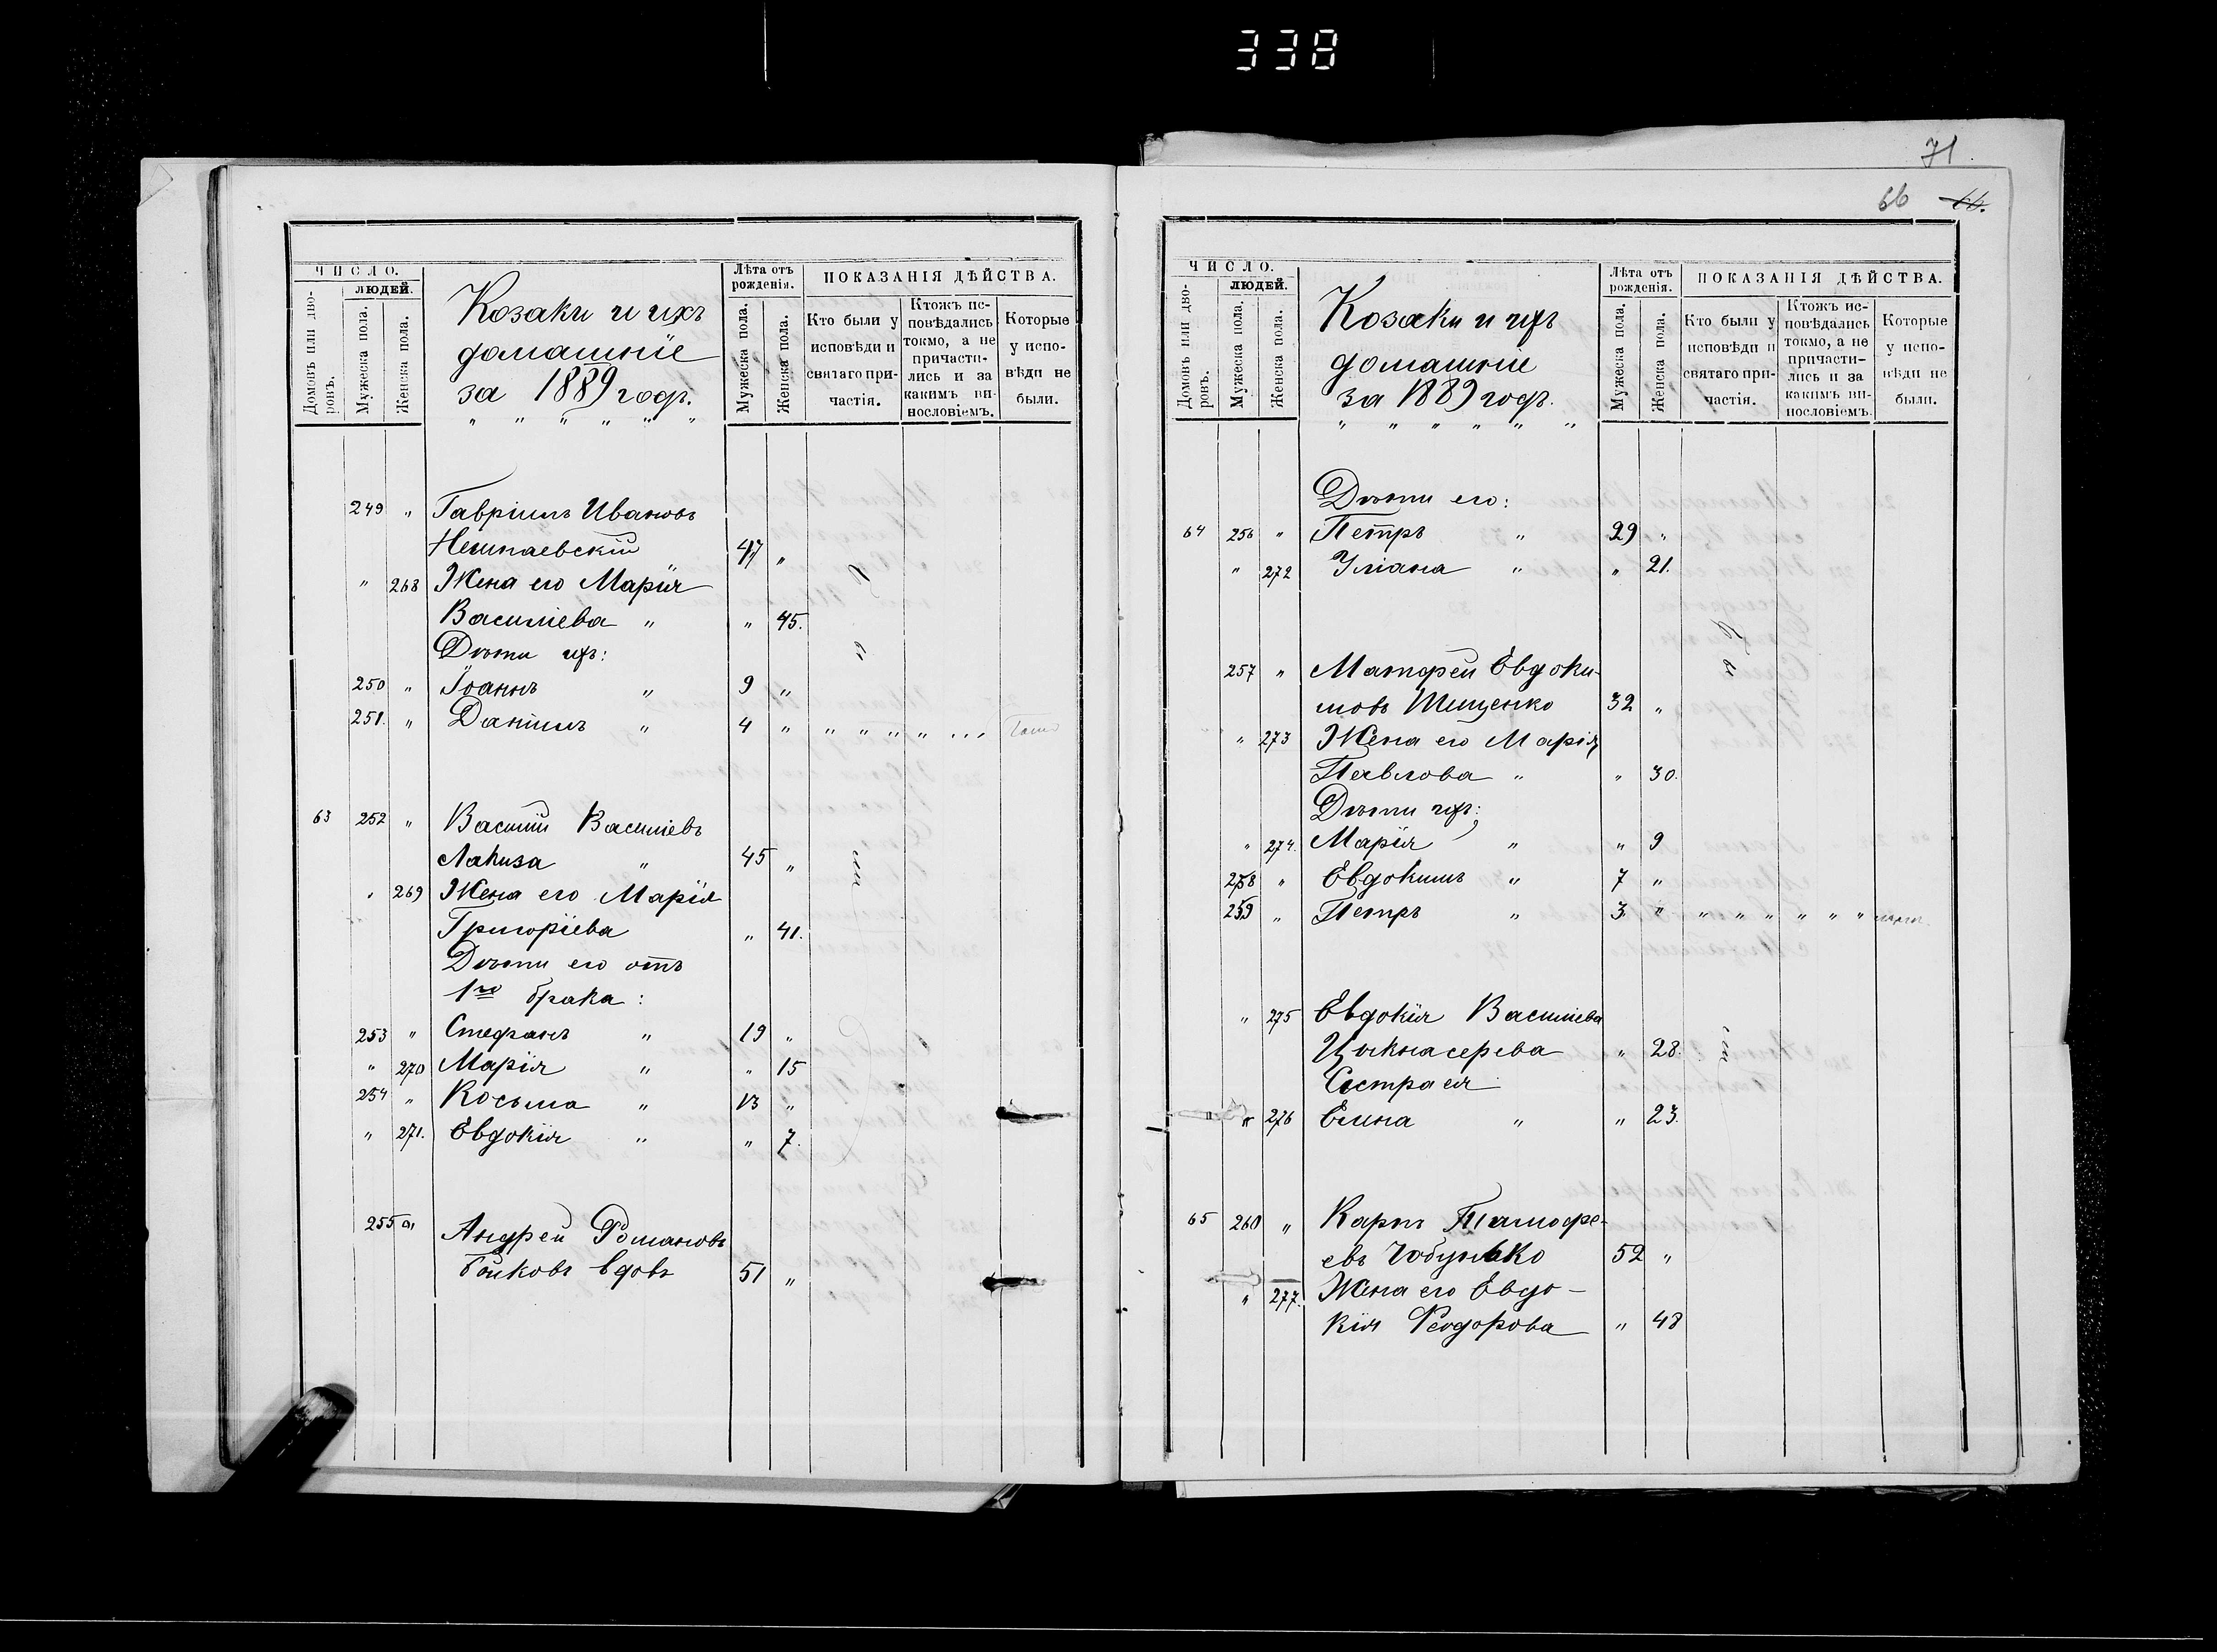 338
71
66 66.
ЧИСЛО.
ЛЮДЕЙ.
Домовъ или дворовъ.
Мужеска пола.
Женска пола.
Козаки и ихъ
домашніе
за 1889 годъ.
Лѣта отъ рожденія.
Мужеска пола.
Женска пола.
ПОКАЗАНІЯ ДѢЙСТВА.
Кто были у исповѣди и святаго причастія.
Ктожъ исповѣдались токмо, а не причастились и за какимъ винословіемъ.
Которые у исповѣди не были.
249 " Гавріилъ Ивановъ
47 "
" 268 Жена его Марія
Василіева " " 45.
Дѣти ихъ:
250 " Іоаннъ " 9 "
251. " Даніилъ " 4 " " " " " . . .
63 252 " Василій Василіевъ
Лакиза " 45 "
" 269 Жена его Марія
Григоріева " 41.
Дѣти его отъ
1го брака:
253 " Стефанъ " 19 "
" 270 Марія " " 15
254 " Косьма " 13 "
" 271. Евдокія " " 7.
255 Андрей Романовъ
Бойковъ вдовъ 51 "
ЧИСЛО.
ЛЮДЕЙ.
Домовъ или дворовъ.
Мужеска пола.
Женска пола.
Козаки и ихъ
домашніе
за 1889 годъ.
Лѣта отъ рожденія.
Мужеска пола.
Женска пола.
ПОКАЗАНІЯ ДѢЙСТВА.
Кто были у исповѣди и святаго причастія.
Ктожъ исповѣдались токмо, а не причастились и за какимъ винословіемъ.
Которые у исповѣди не были.
Дѣти его:
64 256 " Петръ " 29 "
" 272 Уліана " " 21.
257 " Матфей Евдоки-
мовъ Тищенко 32 "
" 273 Жена его Марія
Павлова " " 30.
Дѣти ихъ:
" 274. Марія " " 9
258 " Евдокимъ " 7 "
259 " Петръ " 3 " " " " " " "
" 275 Евдокія Василіева
" 28.
Сестра ея
" 276 Елена " " 23.
65 260 " Карпъ Тимофе-
евъ 52 "
" 277. Жена его Евдо-
кія Феодорова " 48